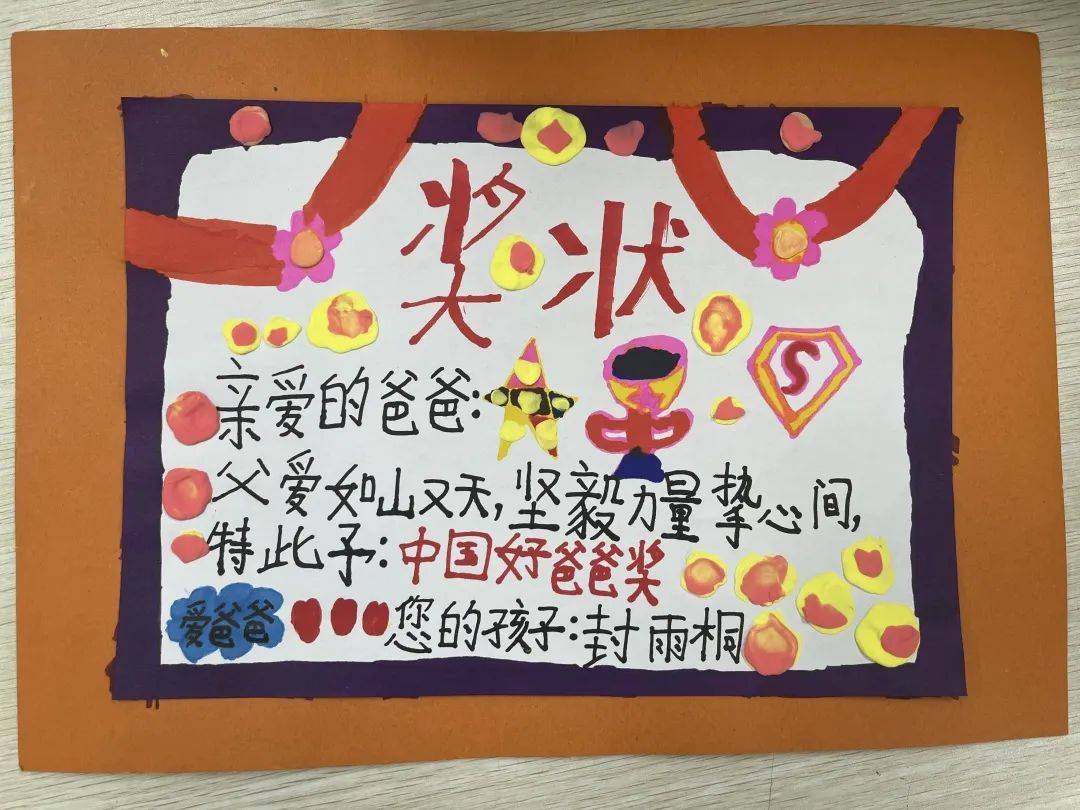 奖状
S
亲爱的爸爸:
父爱如山又天,坚毅力量挚心间,
特此予:中国好爸爸奖
爱爸爸
您的孩子:封雨桐